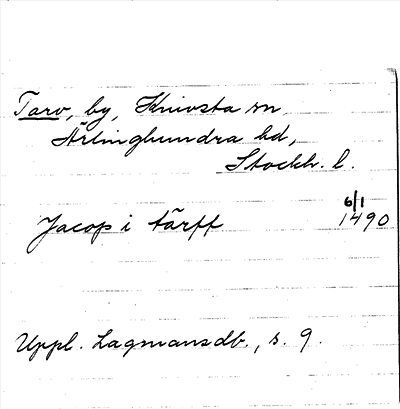 Tarv, by, Knivsta sn,
Ärlinghundra hd,
Stockh. l.
6/1
Jacop i tärff 1490
Uppl. Lagmansdb., s. 9.